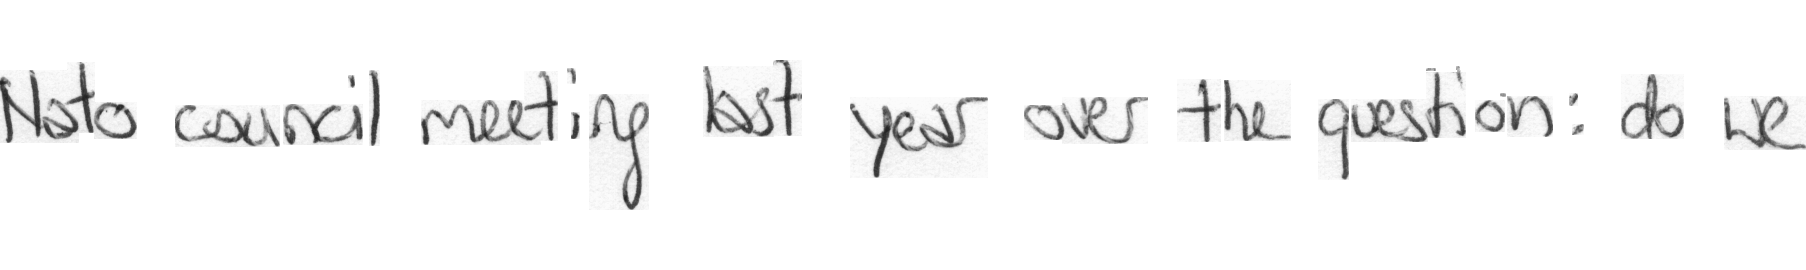 Nato council meeting last year over the question: do we